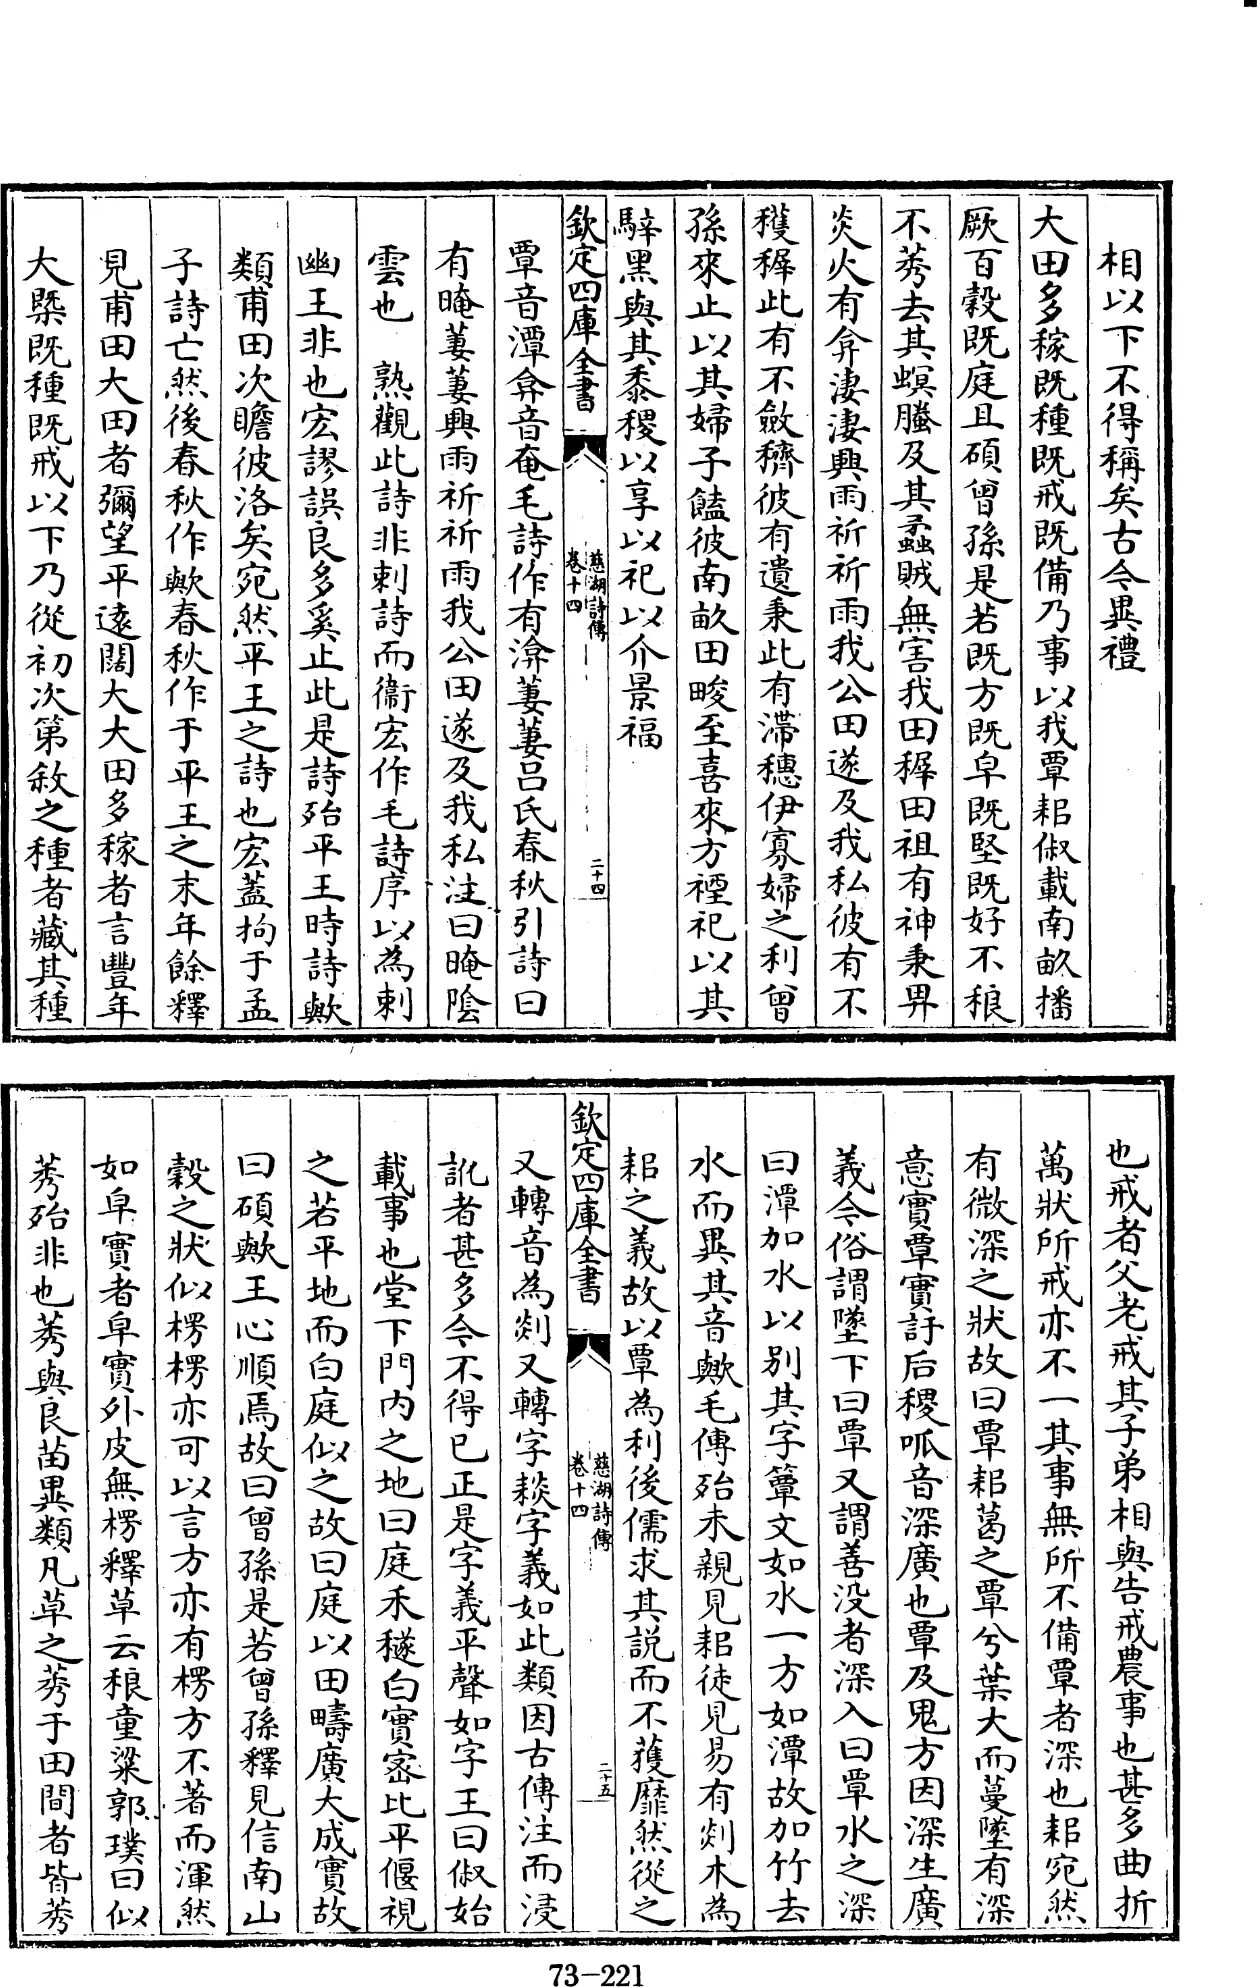 相以下不得稱矣古今異禮
大田多稼既種既戒既備乃事以我覃耜俶載南畝播
厥百穀既庭且碩曾孫是若既方既皁既堅既好不稂
不莠去其螟螣及其蟊賊無害我田穉田祖有神秉畀
炎火有弇淒淒興雨祈祈雨我公田遂及我私彼有不
穫穉此有不斂穧彼有遺秉此有滯穗伊寡婦之利曾
孫來止以其婦子饁彼南畝田畯至喜來方禋祀以其
騂黑與其黍稷以享以祀以介景福
欽定四庫全書
慈湖詩傳
卷十四
二十四
覃音潭弇音奄毛詩作有渰萋萋呂氏春秋引詩曰
有晻萋萋興雨祈祈雨我公田遂及我私注曰晻陰
雲也 熟觀此詩非刺詩而衞宏作毛詩序以為刺
幽王非也宏謬誤良多奚止此是詩殆平王時詩歟
類甫田次瞻彼洛矣宛然平王之詩也宏蓋拘于孟
子詩亡然後春秋作歟春秋作于平王之末年餘釋
見甫田大田者彌望平遠闊大大田多稼者言豐年
大槩既種既戒以下乃從初次第敘之種者藏其種
也戒者父老戒其子弟相與告戒農事也甚多曲折
萬狀所戒亦不一其事無所不備覃者深也耜宛然
有微深之狀故曰覃耜葛之覃兮葉大而蔓墜有深
意實覃實訏后稷呱音深廣也覃及鬼方因深生廣
義今俗謂墜下曰覃又謂善没者深入曰覃水之深
曰潭加水以别其字簟文如水一方如潭故加竹去
水而異其音歟毛傳殆未親見耜徒見易有剡木為
耜之義故以覃為利後儒求其説而不獲靡然從之
欽定四庫全書
慈湖詩傳
卷十四
二十五
又轉音為剡又轉字䅘字義如此類因古傳注而浸
訛者甚多今不得已正是字義平聲如字王曰俶始
載事也堂下門内之地曰庭禾穟白實密比平偃視
之若平地而白庭似之故曰庭以田疇廣大成實故
曰碩歟王心順焉故曰曾孫是若曾孫釋見信南山
穀之狀似楞楞亦可以言方亦有楞方不著而渾然
如皁實者皁實外皮無楞釋草云稂童粱郭璞曰似
莠殆非也莠與良苗異類凡草之莠于田間者皆莠
73-221